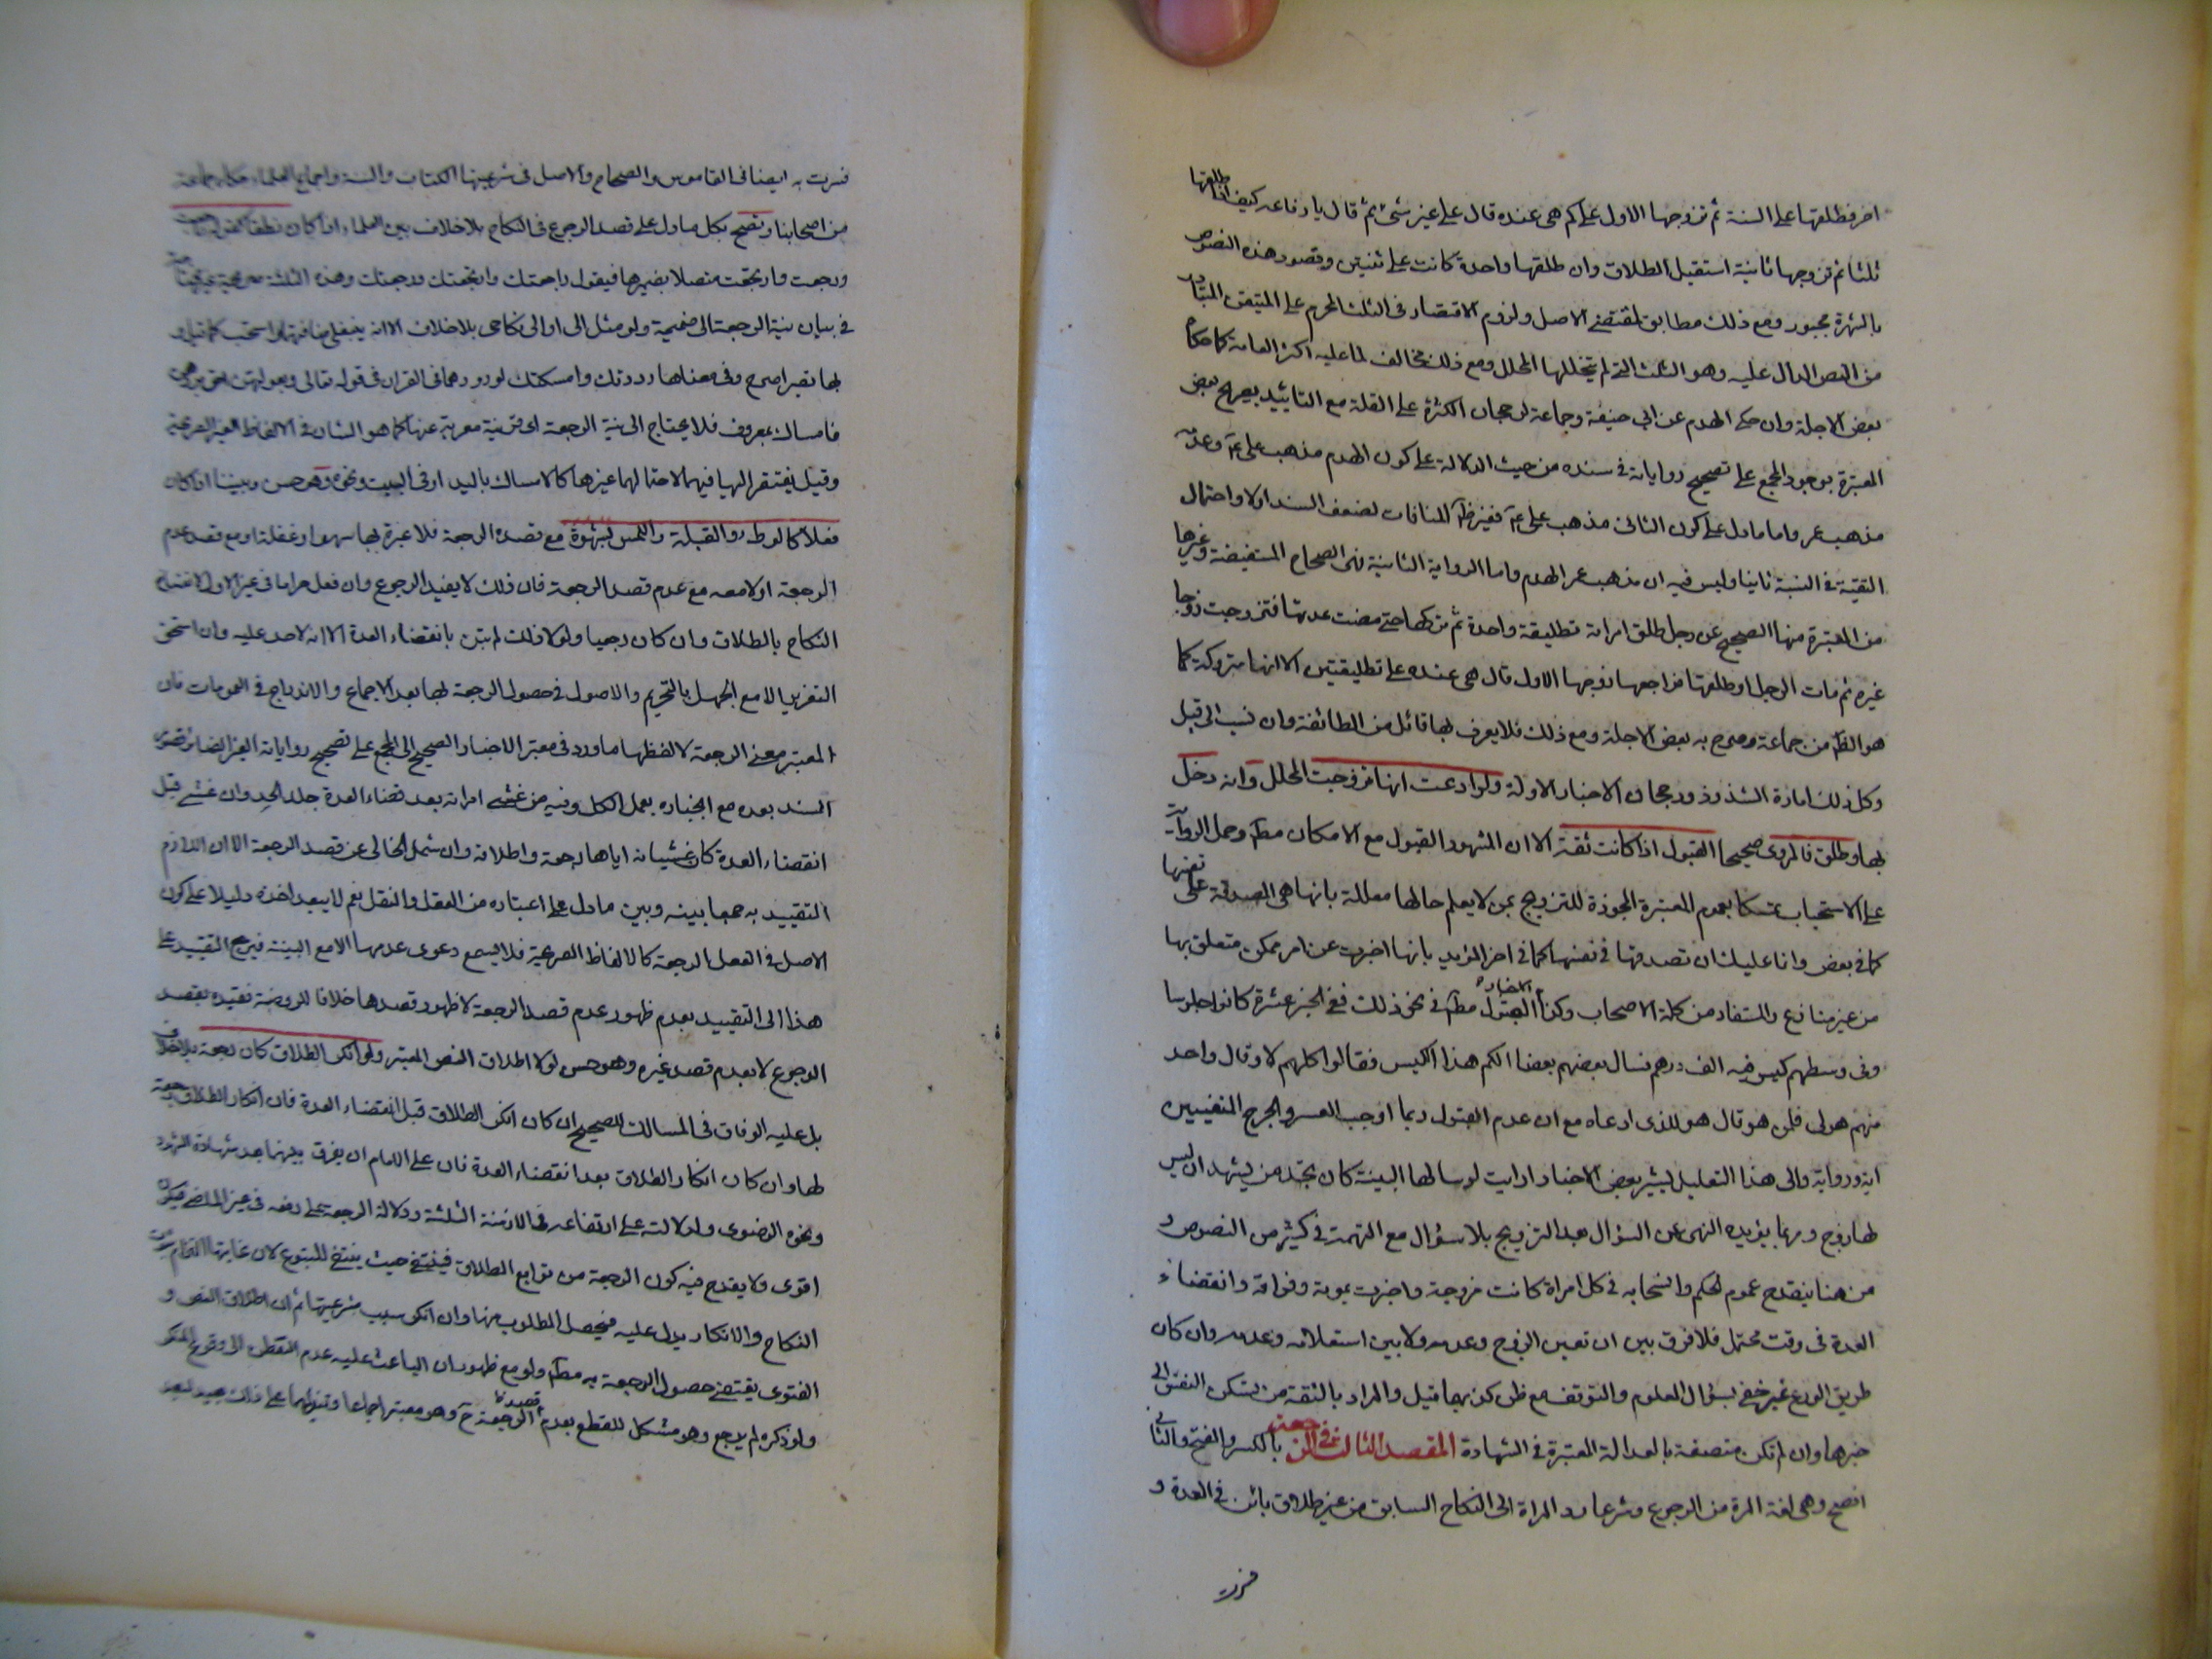 اخر فطلقها على السنة ثم تزوجها الاول على كم هى عنده قال على غير شئ ثم قال يا رفاعه كيف اذا طلقها
ثلثا ثم تزوجها ثانية استقبل الطلاق وان طلقها واحدة كانت على ثنتين وقصور هذه النصوص
بالشهرة مجبور ومع ذلك مطابق لمقتضى الاصل ولزوم الاقتصار فى الثلث المحرم على المتيقن المتبادر
من النص الدال عليه وهو الثلث التى لم يتخللها المحلل ومع ذلك مخالف لما عليه اكثر العامة كما حكاه
بعض الاجلة وان حكى الهدم عن ابى حنيفة وجماعة لرجحان الكثرة على القلة مع التاييد بصريح بعض
المعتبرة بوجود المجمع على تصحيح رواياته فى سنده من حيث الدلالة على كون الهدم مذهب على ع وعدمه
مذهب عمر واما ما دل على كون الثانى مذهب على ع فغير ظ المنافات لضعف السند اولا واحتمال
التقية فى النسبة ثانيا وليس فيه ان مذهب عمر الهدم واما الرواية الثانية فهى الصحاح المستفيضة وغيرها
من المعتبرة منها الصحيح عن رجل طلق امراته تطليقة واحدة ثم تركها حتى مضت عدتها فتزوجت زوجا
غيره ثم مات الرجل او طلقها فراجعها زوجها الاول قال هى عنده على تطليقتين الا انها متروكة كما
هو الظ من جماعة وصرح به بعض الاجلة ومع ذلك فلا يعرف لها قائل من الطائفة وان نسب الى قيل
وكل ذلك امارة الشذوذ ورجحان الاخبار الاولة ولو ادعت انها تزوجت المحلل وانه دخل
بها وطلق فالمروى صحيحا القبول اذا كانت ثقة الا ان المشهور القبول مع الامكان مط وحمل الرواية
على الاستحباب تمسكا بعموم المعتبرة المجوزة للتزويج بمن لا يعلم حالها معللة بانها هى المصدقة على نفسها
كما فى بعض وانما عليك ان تصدقها فى نفسها كما فى اخر المؤيد بانها اخبرت عن امر ممكن متعلق بها
من غير منازع والمستفاد من كلمة الاصحاب وكذا الاخبار القبول مط فى نحو ذلك ففى الخبر عشرة كانوا جلوسا
وفى وسطهم كيس فيه الف درهم فسال بعضهم بعضا الكم هذا الكيس فقالوا كلهم لا وقال واحد
منهم هو لى فلمن هو قال هو للذى ادعاه مع ان عدم القبول ربما اوجب العسر والحرج المنفيين
اية ورواية والى هذا التعليل يشير بعض الاخبار ارايت لو سالها البينة كان يجد من يشهد ان ليس
لها زوج ومما يؤيده النهى عن السؤال بعد التزويج بلا سؤال مع التهمة فى كثير من النصوص و
من هنا ينقدح عموم الحكم وانسحابه فى كل امراة كانت مزوجة واخبرت بموته وفراقه وانقضاء
العدة فى وقت محتمل فلا فرق بين ان تعين الزوج وعدمه ولا بين استعلامه وعدمه وان كان
طريق الورع غير خفى بسؤال المعلوم والتوقف مع ظن كذبها قيل والمراد بالثقة من تسكن النفس الى
خبرها وان لم تكن متصفة بالعدالة المعتبرة فى الشهادة المقصد الثالث فى الرجعة بالكسر والفتح والثانى
افصح وهى لغة المرة من الرجوع وشرعا رد المراة الى النكاح السابق من غير طلاق بائن فى العدة و
فسرت به ايضا فى القاموس والصحاح والاصل فى شرعيتها الكتاب والسنة واجماع العلماء حكاه جماعة
من اصحابنا وتصح بكل ما دل على قصد الرجوع فى النكاح بلا خلاف بين العلماء اذا كان نطقا كقوله
ورجعت وارتجعت متصلا بضميرها فيقول راجعتك وارتجعتك ورجعتك وهذه الثلثة صريحة
فى بيان نية الرجعة الى ضميمة ولو مثل الى او الى نكاحى بلا خلاف الا انه ينبغى
بها تصير اصرح وفى معناها رددتك وامسكتك لورودهما فى القران فى قوله تعالى وبعولتهن احق بردهن
فامساك بمعروف فلا يحتاج الى نية الرجعة اى قرينة معربة عنها كما هو الشان فى الالفاظ الغير الصريحة
وقيل يفتقر اليها فيهما لاحتمالهما غيرها كالامساك باليد او فى البيت ونحوه وهو حسن
فعلا كالوطء والقبلة واللمس بشهوة مع قصده الرجعة فلا عبرة بها سهوا او غفلة او مع قصد عدم
الرجعة او لا معه مع عدم قصد الرجعة فان ذلك لا يفيد الرجوع وان فعل حراما فى غير الاول لانفساخ
النكاح بالطلاق وان كان رجعيا ولولا ذلك لم تبن بانقضاء العدة الا انه لا حد عليه وان استحق
التعزير الا مع الجهل بالتحريم والاصول فى حصول الرجعة بها بعد الاجماع والاندراج فى العمومات فان
المعتبر معنى الرجعة لا لفظها ما ورد فى معتبر الاخبار الصحيح الى المجمع على تصحيح رواياته
السند بعده مع انجباره بعمل الكل وفيه من غشى امراته بعد قضاء العدة جلد الحد وان غشى قبل
انقضاء العدة كان غشيانه اياها رجعة واطلاقه وان شمل الخالى عن قصد الرجعة الا ان اللازم
التقييد به جمعا بينه وبين ما دل على اعتباره من العقل والنقل نعم لا يبعد اخذه دليلا على كون
الاصل فى الفعل الرجعة كالالفاظ الصريحة فلا يسمع دعوى عدمها الا مع البينة فيرجع التقييد على
هذا الى التقييد بعدم ظهور عدم قصد الرجعة لا ظهور قصدها خلافا للروضة فقيده بقصد
الرجوع لا بعدم قصد غيره وهو حسن لولا اطلاق النص المعتبر ولو انكر الطلاق كان رجعة بلا خلاف
بل عليه الوفاق فى المسالك للصحيح ان كان انكر الطلاق قبل انقضاء العدة فان انكار الطلاق رجعة
لها وان كان انكار الطلاق بعد انقضاء العدة فان على الامام ان يفرق بينهما بعد شهادة الشهود
ونحوه الرضوى ولدلالته على ارتفاعه فى الازمنة الثلثة ودلالة الرجعة على رفعه فى غير الماضى فيكون
اقوى ولا يقدح فيه كون الرجعة من توابع الطلاق فينتفى حيث ينتفى المتبوع لان غايتها
النكاح والانكار يدل عليه فيحصل المطلوب منها وان انكر سبب شرعيتها ثم ان اطلاق النص و
الفتوى يقتضى حصول الرجعة به مط ولو مع ظهور ان الباعث عليه عدم التفطن الى وقوع المنكر
ولو ذكره لم يرجع وهو مشكل للقطع بعدم قصده الرجعة ح وهو معتبر اجماعا